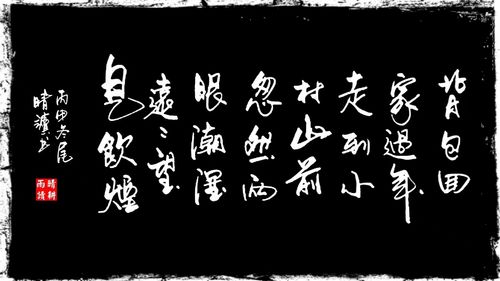 背包回
家過年
走到小
村山前
忽然兩
眼潮濕
遠〻望
見飲煙
丙申冬尾
晴书
晴耕
雨讀